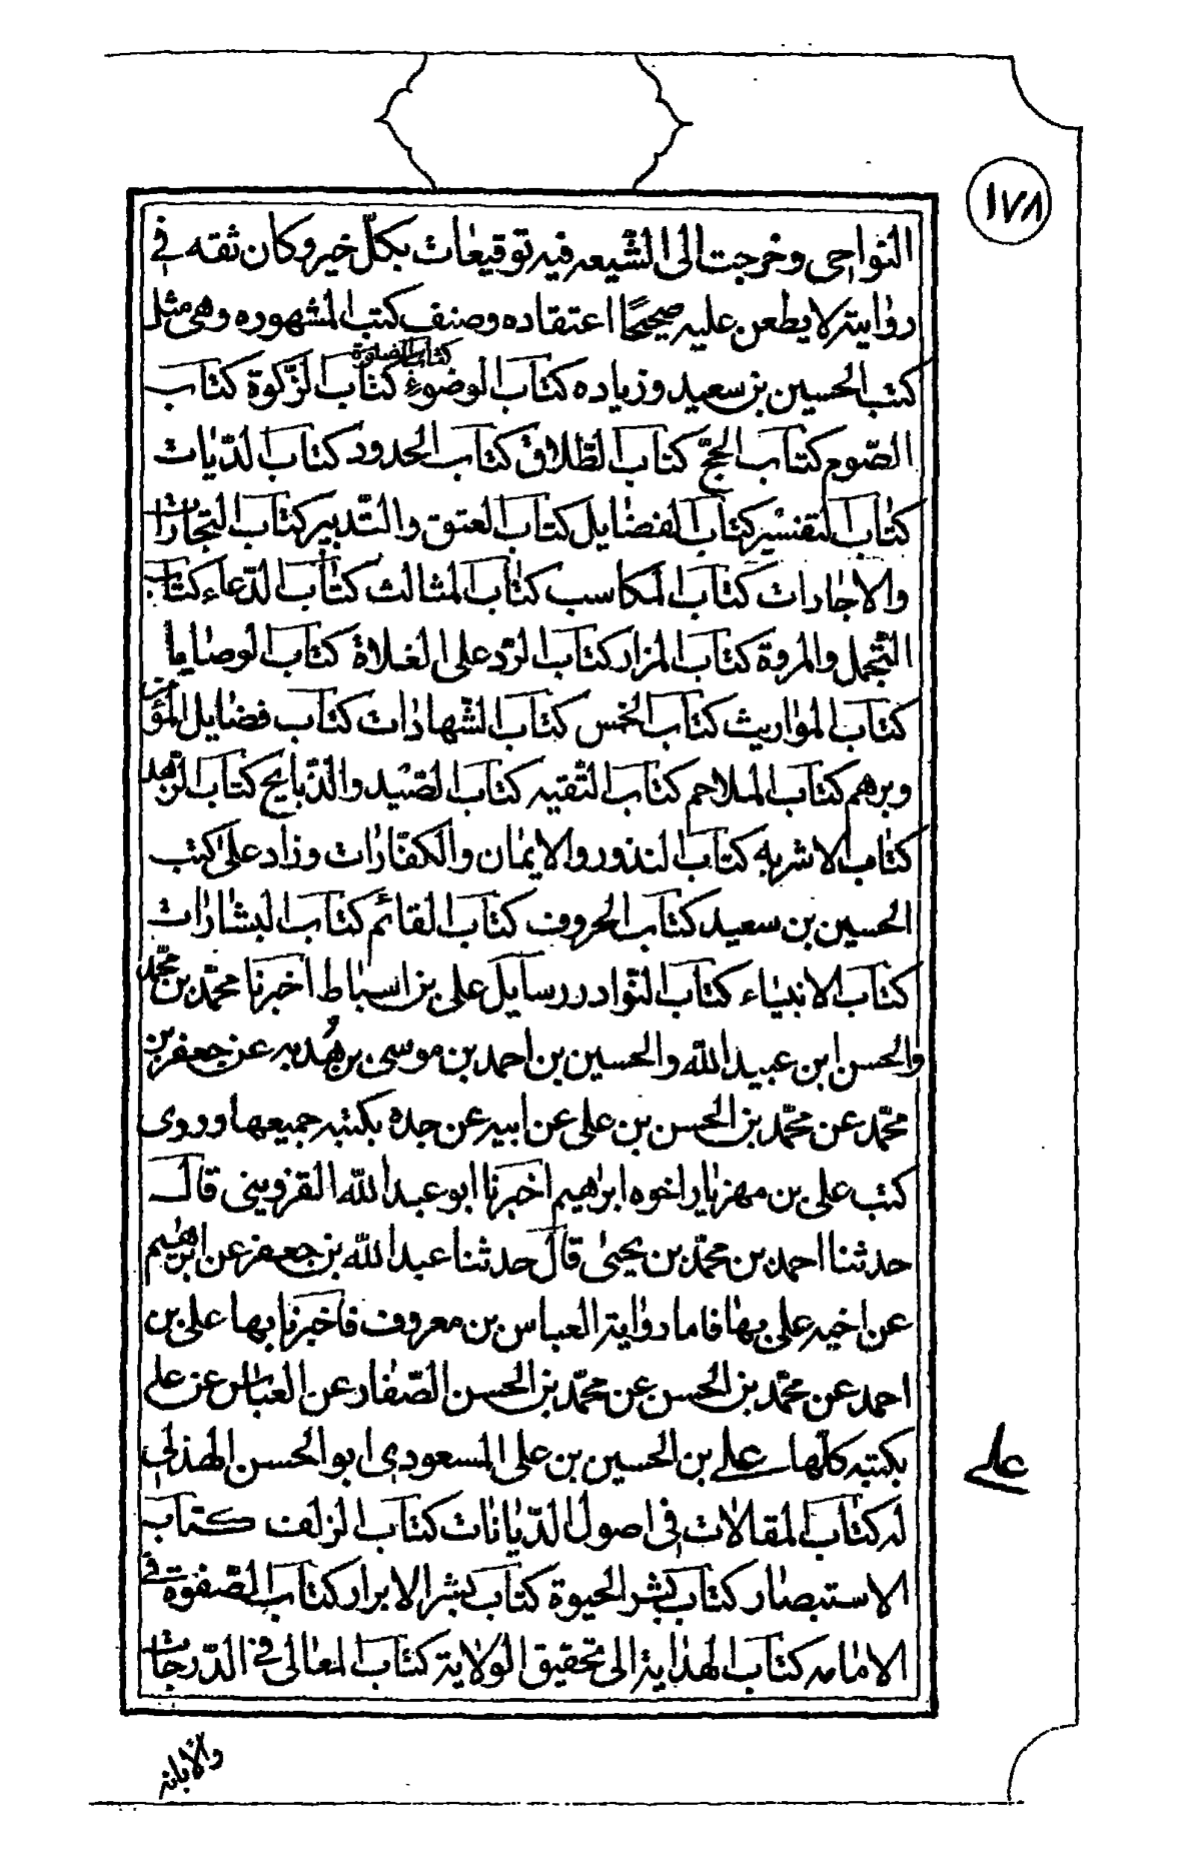 ١٧٨
النواحى وخرجت الى الشّيعه فيه توقيعات بكلّ خير وكان ثقه فى
روايته لا يطعن عليه صحيحًا اعتقاده وصنف كتب المشهوره وهى مثل
كتب الحسين بن سعيد وزياده كتاب الوضوء كتاب الصلوة كتاب الزّكوة كتاب
الصّوم كتاب الحجّ كتاب الطّلاق كتاب الحدود كتاب الدّيات
كتاب التفسير كتاب الفضايل كتاب العتق والتّدبير كتاب التجارات
والاجارات كتاب المكاسب كتاب المثالث كتاب الدّعاء كتاب
التّجمل والمروة كتاب المزار كتاب الرّد على الغلاة كتاب الوصايا
كتاب المواريث كتاب الخمس كتاب الشّهادات كتاب فضايل المؤمنين
وبرهم كتاب الملاحم كتاب التّقيه كتاب الصّيد والذّبايح كتاب الزّهد
كتاب الاشربه كتاب النذور والايمان والكفّارات وزاد على كتب
الحسين بن سعيد كتاب الحروف كتاب القائم كتاب البشارات
كتاب الانبياء كتاب النّوادر رسايل على بن اسباط اخبرنا محمّد بن محمّد
والحسن ابن عبيد اللّه والحسين بن احمد بن موسى بن هُدبه عن جعفر بن
محمّد عن محمّد بن الحسن بن على عن ابيه عن جده بكتبه جميعها وروى
كتب على بن مهزيار اخوه ابراهيم اخبرنا ابو عبد اللّه القزوينى قال
حدثنا احمد بن محمّد بن يحيى قال حدثنا عبد اللّه بن جعفر عن ابراهيم
عن اخيه على بها فاما رواية العباس بن معروف فاخبرنا بها على بن
احمد عن محمّد بن الحسن عن محمّد بن الحسن الصّفار عن العباس عن على
بكتبه كلّها على بن الحسين بن على المسعودى ابو الحسن الهذلى
على
له كتاب المقالات فى اصول الدّيانات كتاب الزلف كتاب
الاستبصار كتاب بشر الحيوة كتاب بشر الابرار كتاب الصّفوة فى
الامامه كتاب الهداية الى تحقيق الولاية كتاب المعالى فى الدّرجات
والابانه